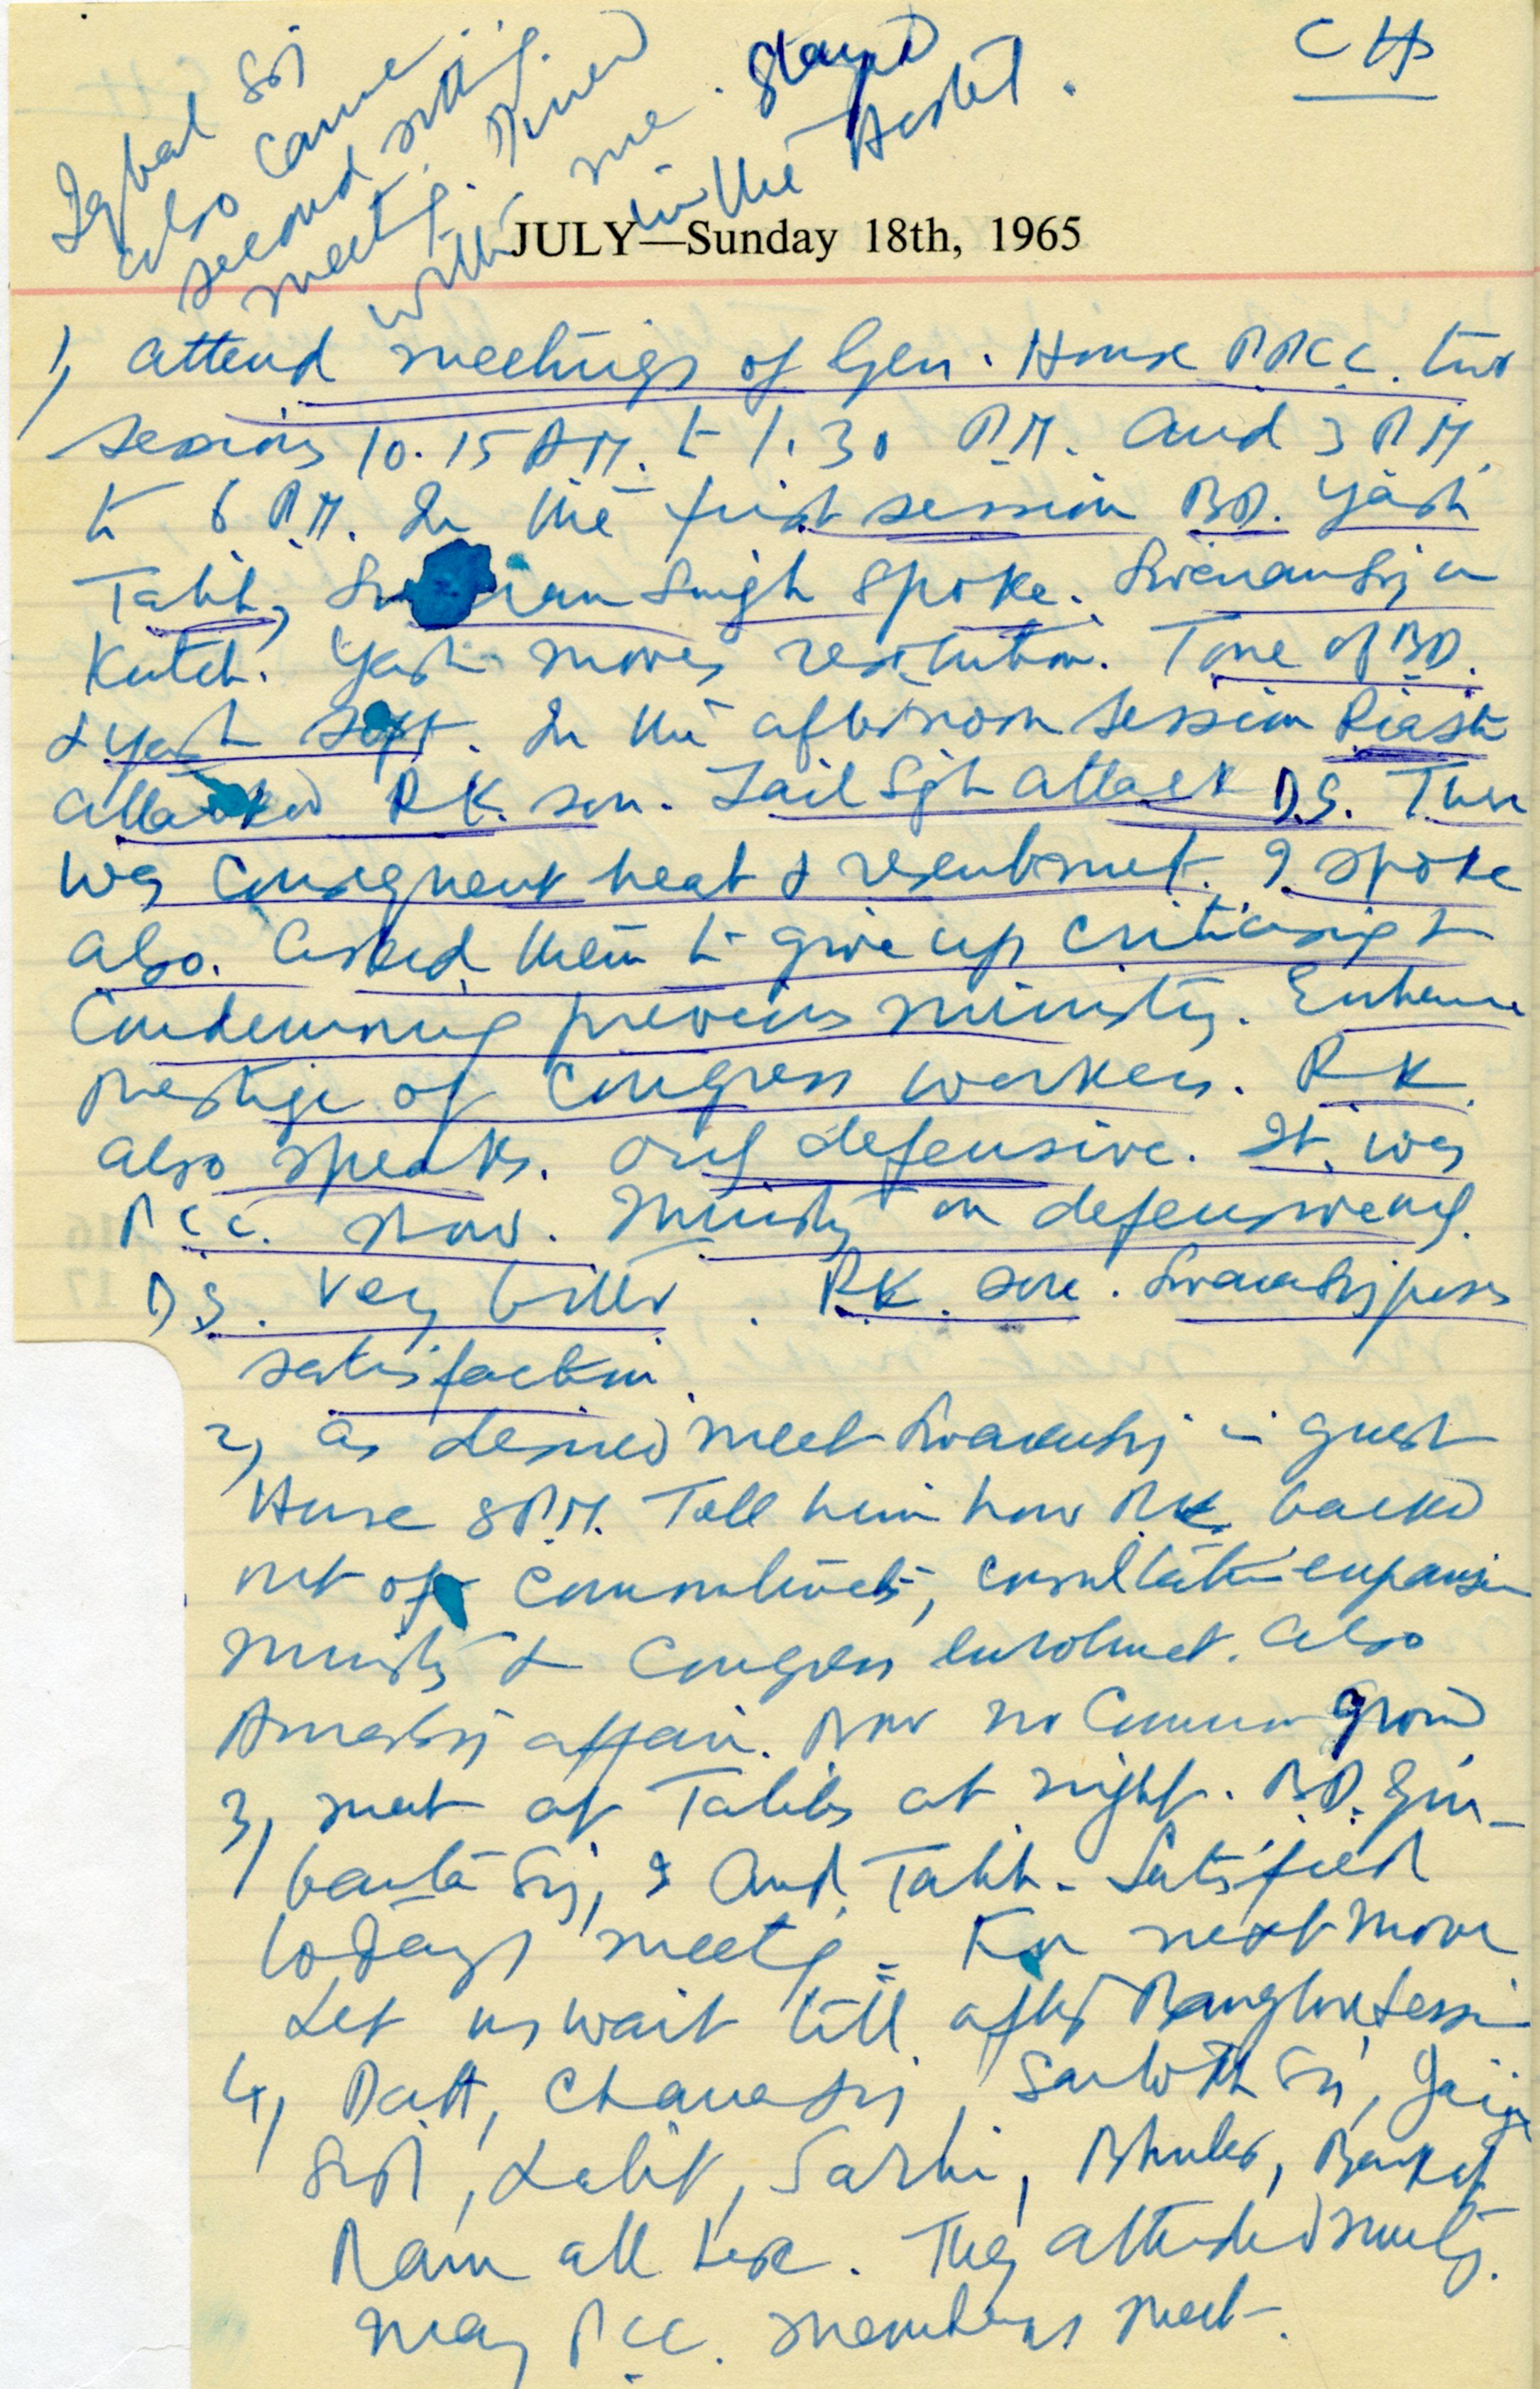 CH
Iqbal Sgh
also came
second sitting
meetg. Dined
with me. Stayed
in the Hostel.
JULY—Sunday 18th, 1965
1, Attend meetings of Gen. House PPCC. two
sessions 10.15 AM. to 1.30 P.M. and 3 P.M.
to 6 P.M. In the first session BD. Yash
Talib, Singh spoke. Swaransgj on
Kutch. Yash moves resolution. Tone of BD.
& Yash soft. In the afternoon session
attacked RK. son. Zail Sgh attack D.S. There
was consequent heat & resentment. I spoke
also. Asked them to give up criticising &
condemning previous ministry. Enhance
prestige of Congress workers. RK.
also speaks. Only defensive. It was
P.C.C. show. Ministry on defensive only.
D.S. very bitter. RK. sore. Swaransgj
satisfaction.
2, As desired meet Swaransgj in Guest
House 8 P.M. Tell him how RK. backed
out of commitments, consultation expansion
ministry & Congress enrolmet. Also
affair. Now no common ground
3, meet at Talibs at night. BD. Gur-
banta Sgj, I and Talib. Satisfied
todays meetg. For next move
Let us wait till after Banglore session
4, Datt, Chanansgj, Sgj,
Lalit, Sathi, Bhuler,
Ram all here. They attended meetg.
Many P.C.C. members meet.